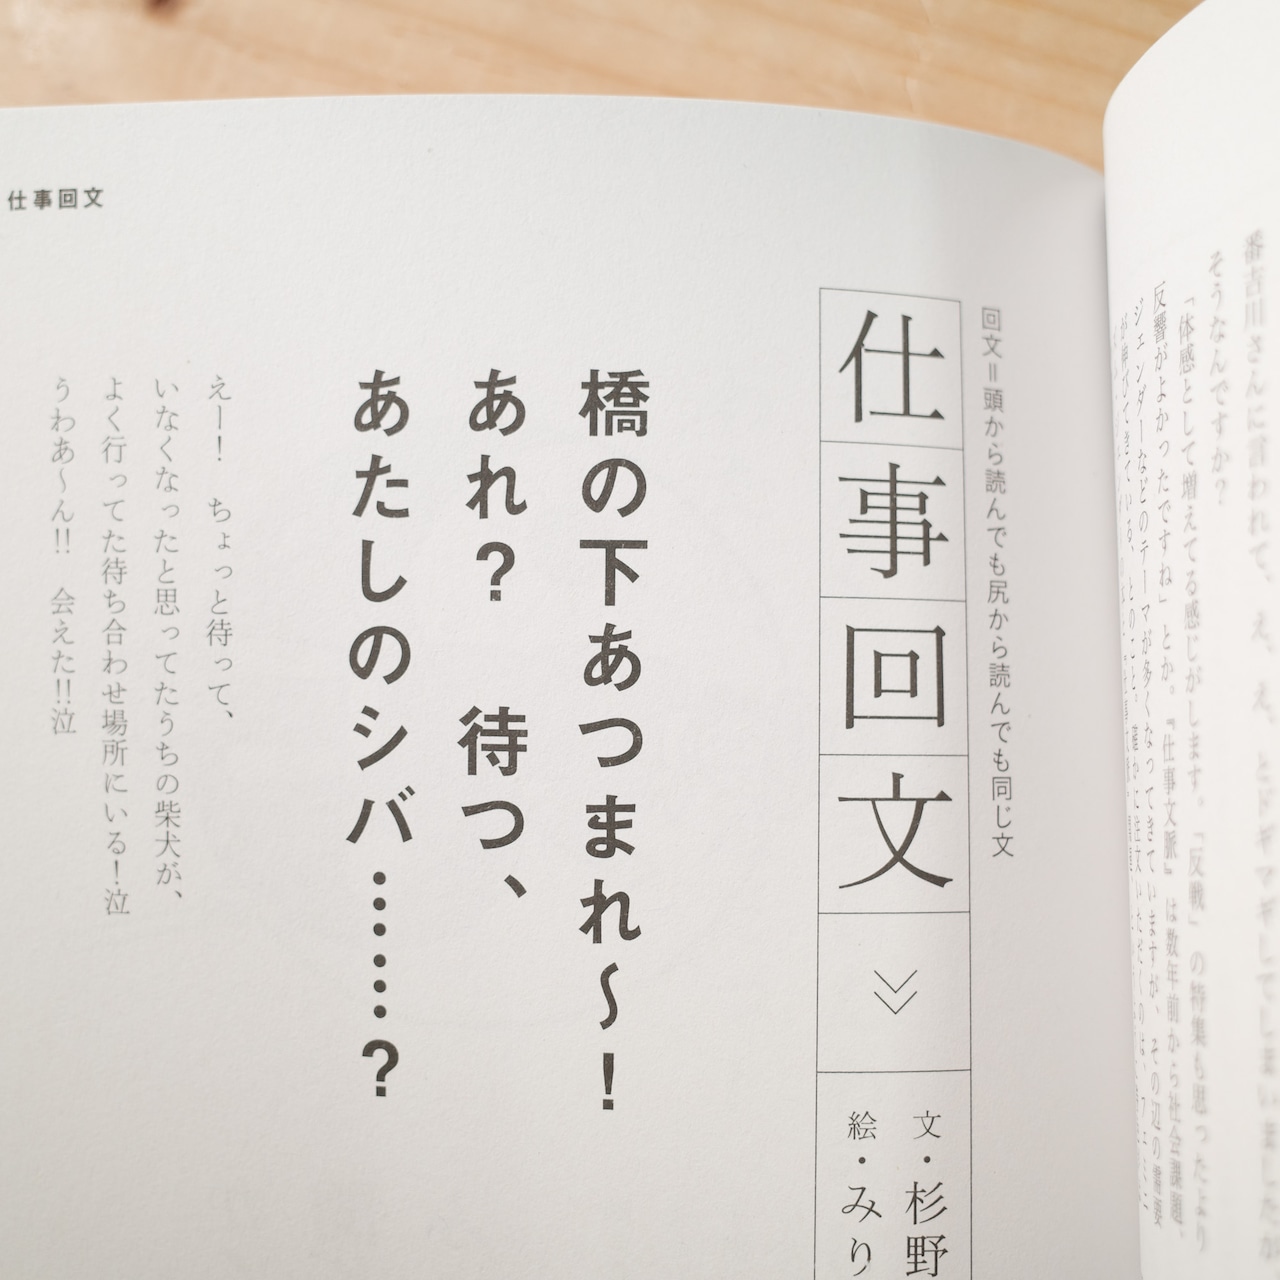 番吉川さんに言われて、え、え、とドギマギしてしまいましたが
そうなんですか?
「体感として増えてる感じがします。「反戦」の特集も思ったより
反響がよかったですね」とか。『仕事文脈』は数年前から社会課題、
ジェンダーなどのテーマが多くなってきていますが、その辺の需要
が伸びてきている、とのこと。確かに注文いただくのは、フェミニ
回文=頭から読んでも尻から読んでも同じ文
仕事回文
文・杉野
絵・みり
橋の下あつまれ〜!
あれ? 待つ、
あたしのシバ……?
えー! ちょっと待って、
いなくなったと思ってたうちの柴犬が、
よく行ってた待ち合わせ場所にいる!泣
うわあ〜ん!! 会えた!!泣
仕事回文